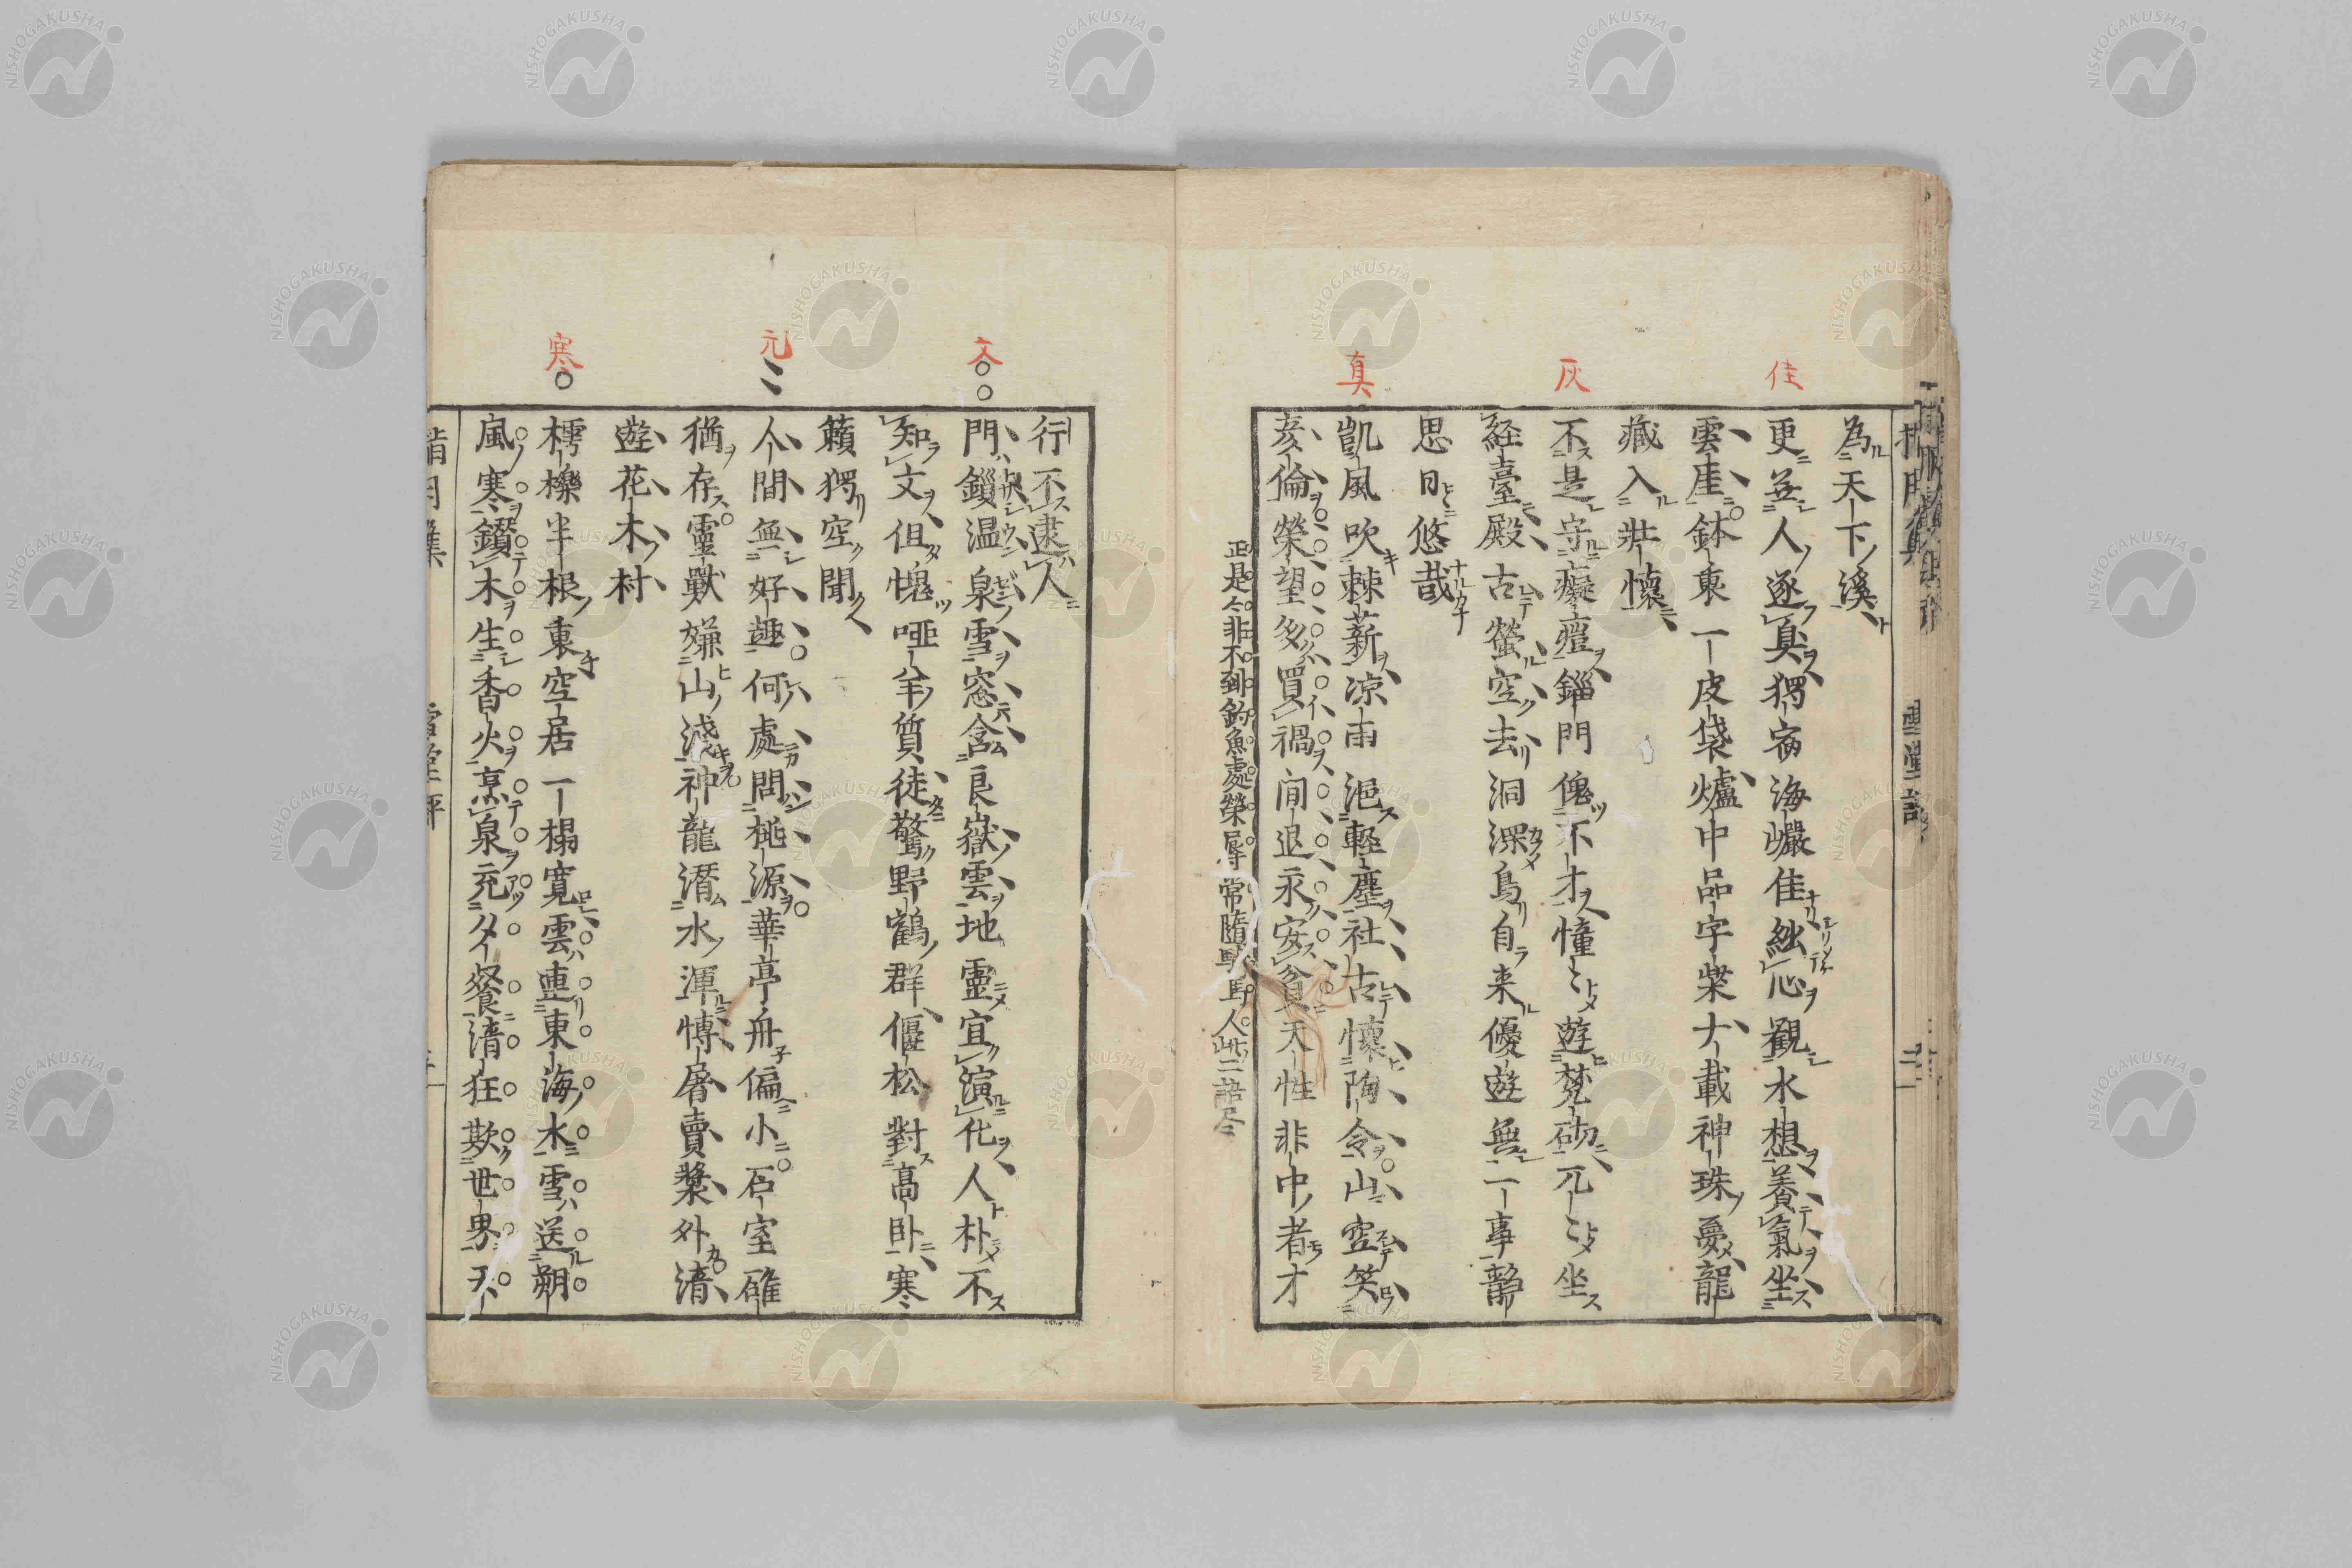 為天下溪
佳
更無人逐真獨宿海巖佳絀心觀水想養氣坐
雲崖鉢東一皮袋爐中品字柴大載神珠夢龍
藏入壯懷
灰
不是守癡瘂鍤門傀不才憧〻遊梵砌兀〻坐
経臺殿古螢空去洞深鳥自来優遊無一事静
思日悠哉
真
凱風吹棘薪涼雨浥軽塵社古懐陶令山空笑
彦倫榮望多買禍间退永安貧天性非中者才
正是今非不到釣魚處榮辱常隨騎馬人此二語尽
行不逮人
文
門鎻温泉雪窓含良嶽雲地靈宜演化人朴不
知文但愧啞羊質徒驚野鶴群偃松對高卧寒
籟獨空聞
元
人間無好趣何處問桃源華亭舟偏小石室雖
猶存靈獣嫌山淺神龍潜水渾愽屠賣漿外清
遊花木村
寒
樗櫟半根裏空居一榻寛雲連東海水雪送朔
風寒鑽木生香火烹泉充夕餐清狂欺世界天
NISHOGAKUSHA